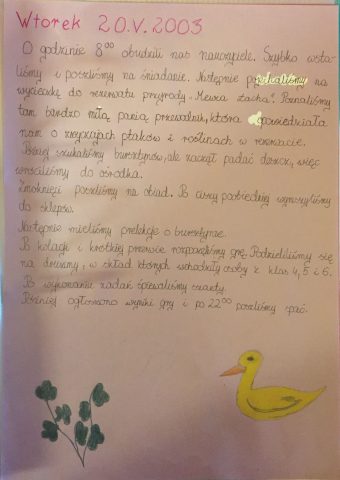 Wtorek 20.V.2003
O godzinie 8⁰⁰ obudzili nas nauczyciele. Szybko wsta-
liśmy i poszliśmy na śniadanie. Następnie pojechaliśmy na
wycieczkę do rezerwatu przyrody „Mewia Łacha". Poznaliśmy
tam bardzo miłą panią przewodnik, która opowiedziała
nam o zwyczajach ptaków i roślinach w rezerwacie.
Później szukaliśmy bursztynów, ale zaczął padać deszcz, więc
wróciliśmy do ośrodka.
Zmoknięci poszliśmy na obiad. Po ciszy poobiedniej wyruszyliśmy
do sklepów.
Następnie mieliśmy prelekcje o bursztynie.
Po kolacji i krótkiej przerwie rozpoczęliśmy grę. Podzieliliśmy się
na drużyny, w skład których wchodziły osoby z klas 4, 5 i 6.
Po wykonaniu zadań śpiewaliśmy szanty.
Później ogłoszono wyniki gry i po 22⁰⁰ poszliśmy spać.